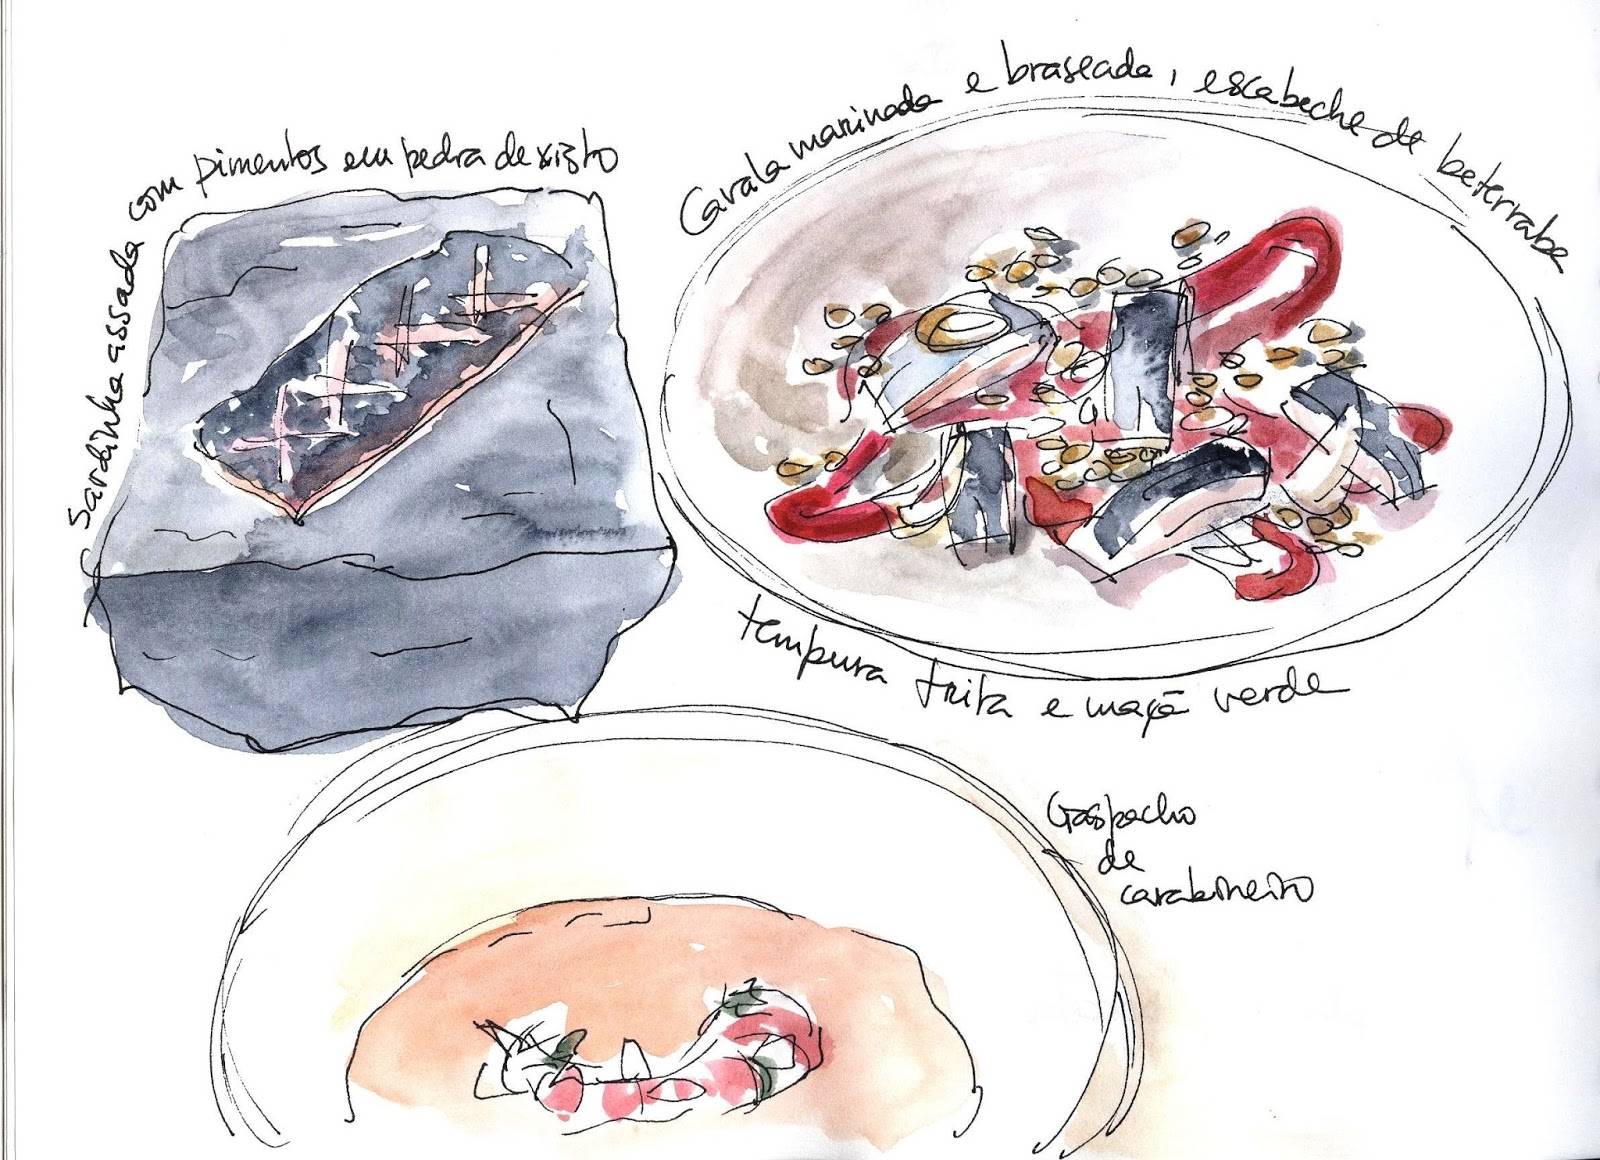 Sardinha assada com pimentos em pedra de xisto
Cavala marinada e braseada, escabeche de beterraba
tempura frita e maçã verde
Gaspacho
de
carabineiro